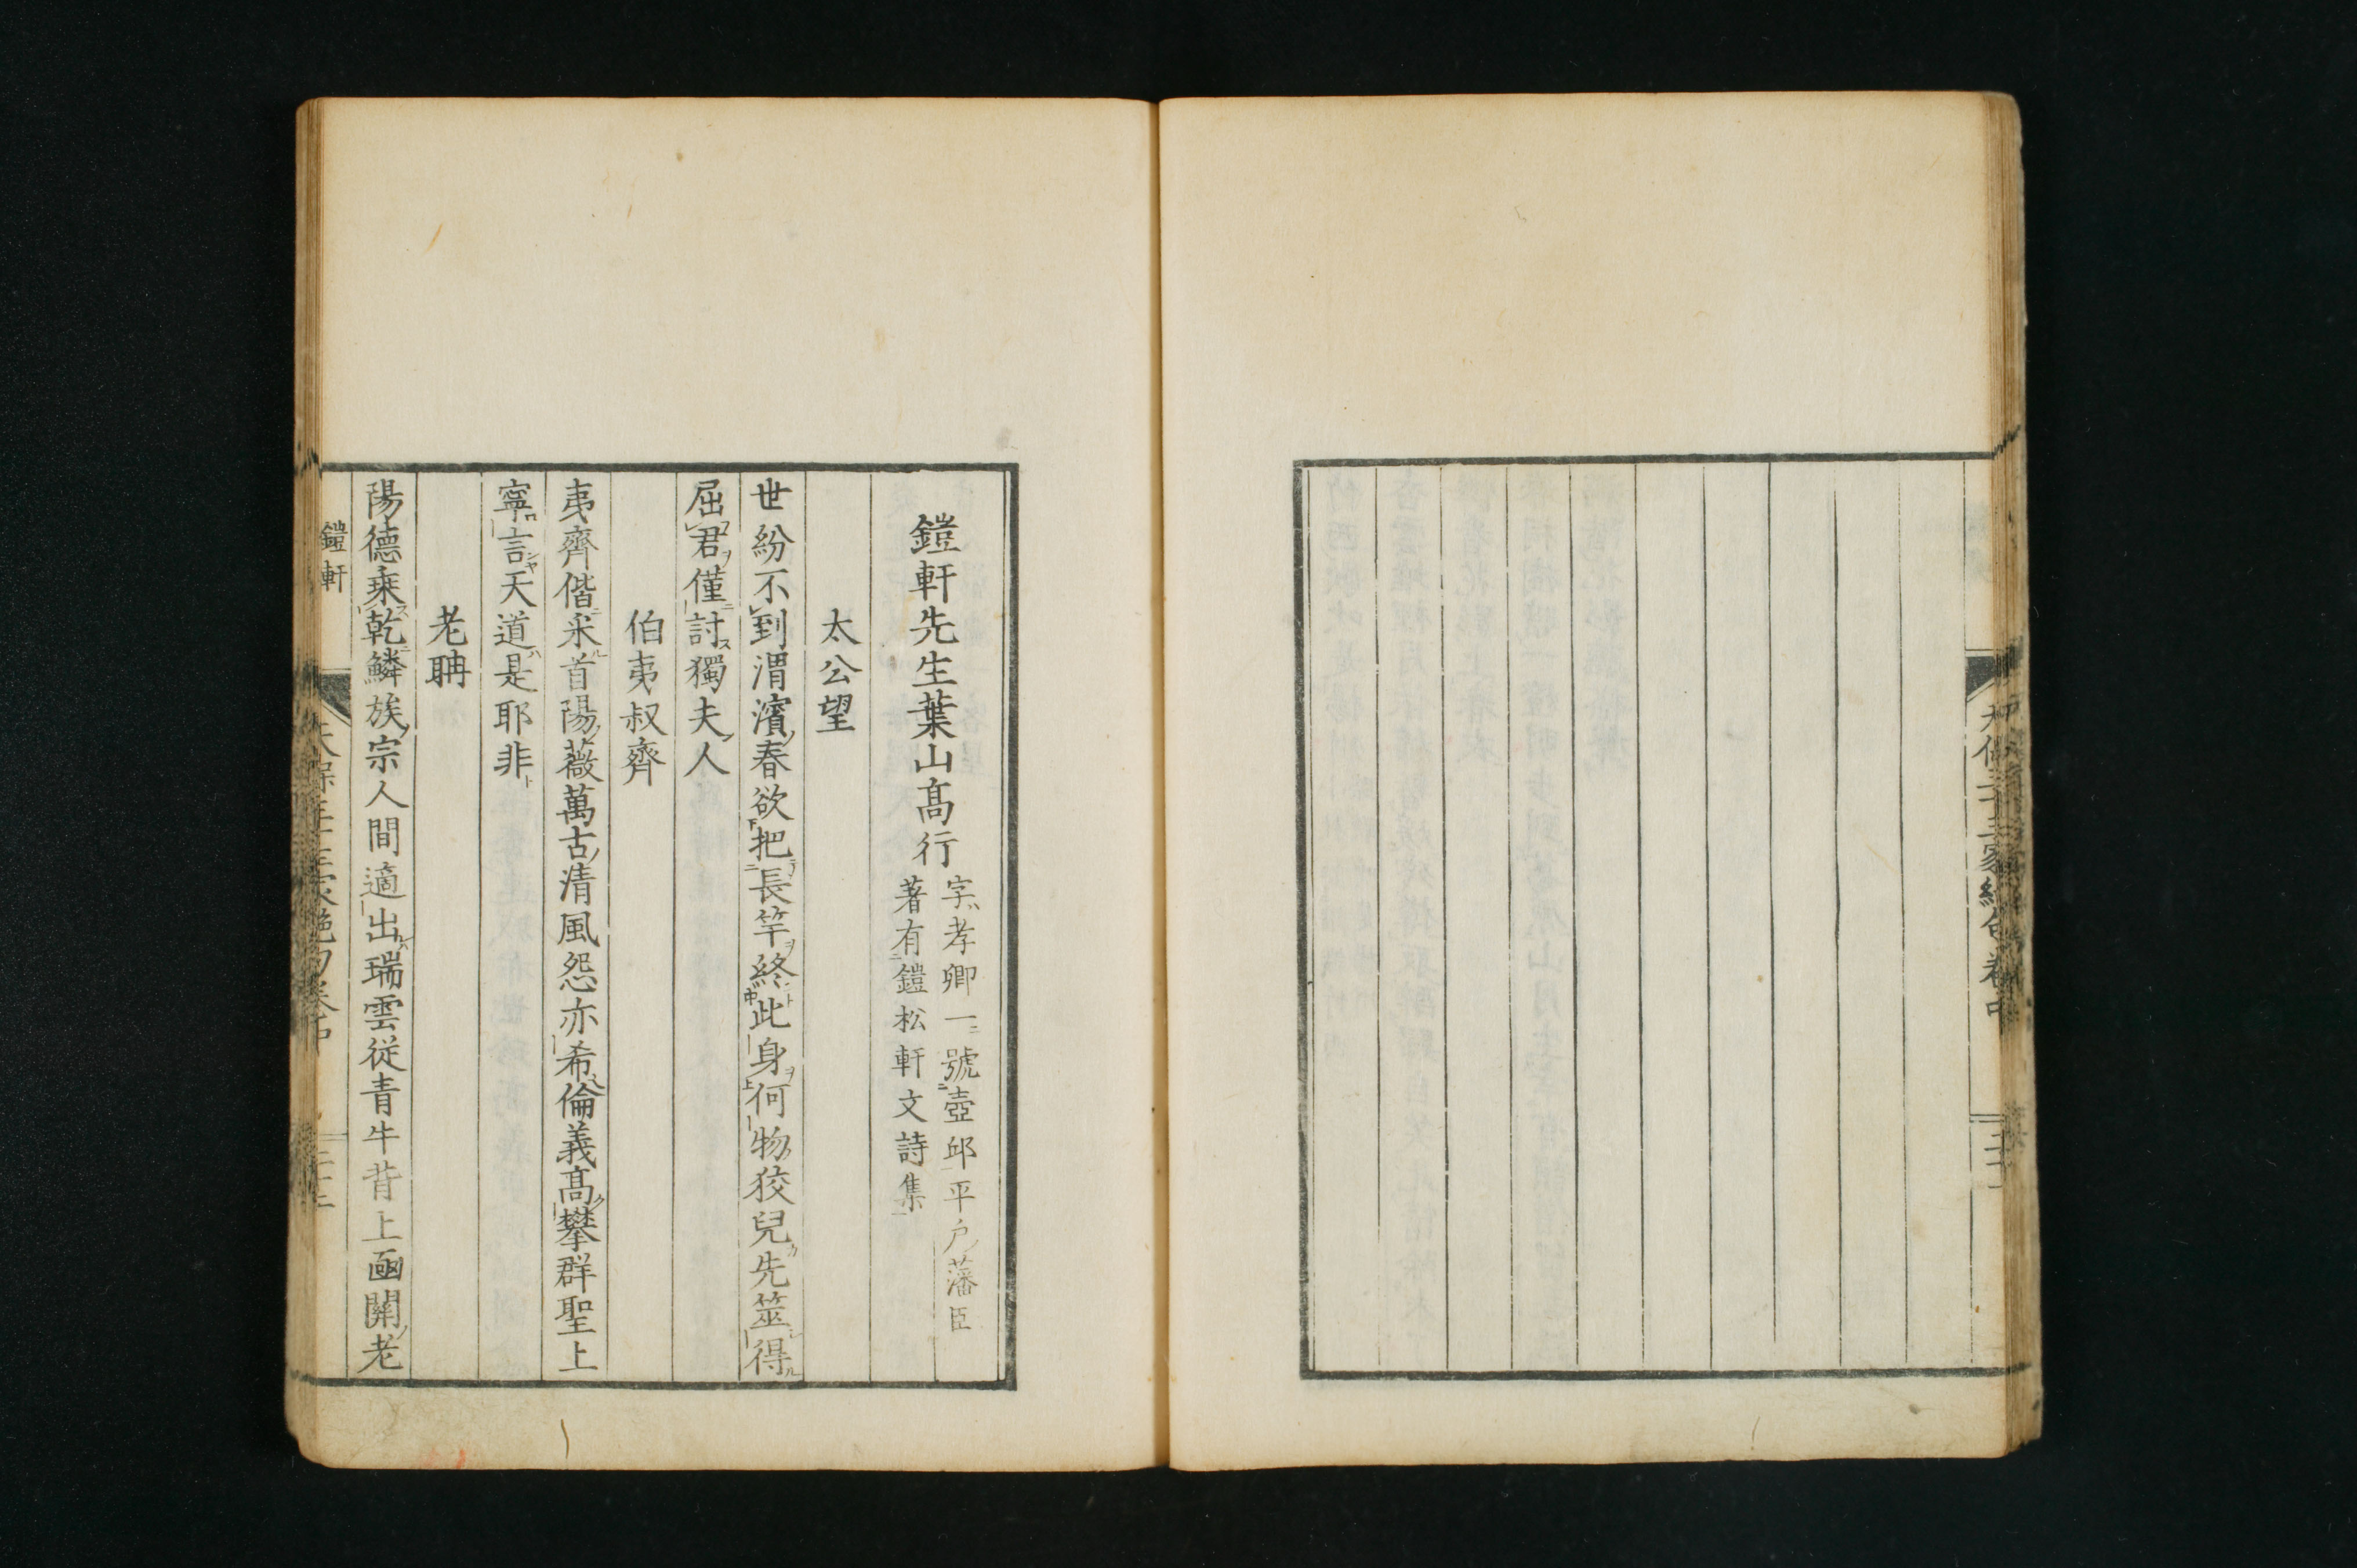 天保三十三家絶句卷中
二十一
鎧軒先生葉山高行
字孝卿一號壺邱平戶藩臣
著有鎧松軒文詩集
太公望
世紛不到渭濱春欲把長竿終此身何物狡兒先筮得
屈君僅討獨夫人
伯夷叔齊
夷齊偕采首陽薇萬古清風怨亦希倫義高攀群聖上
寧言天道是耶非
老聃
陽德乘乾鱗族宗人間適出瑞雲従青牛背上凾關老
鎧軒